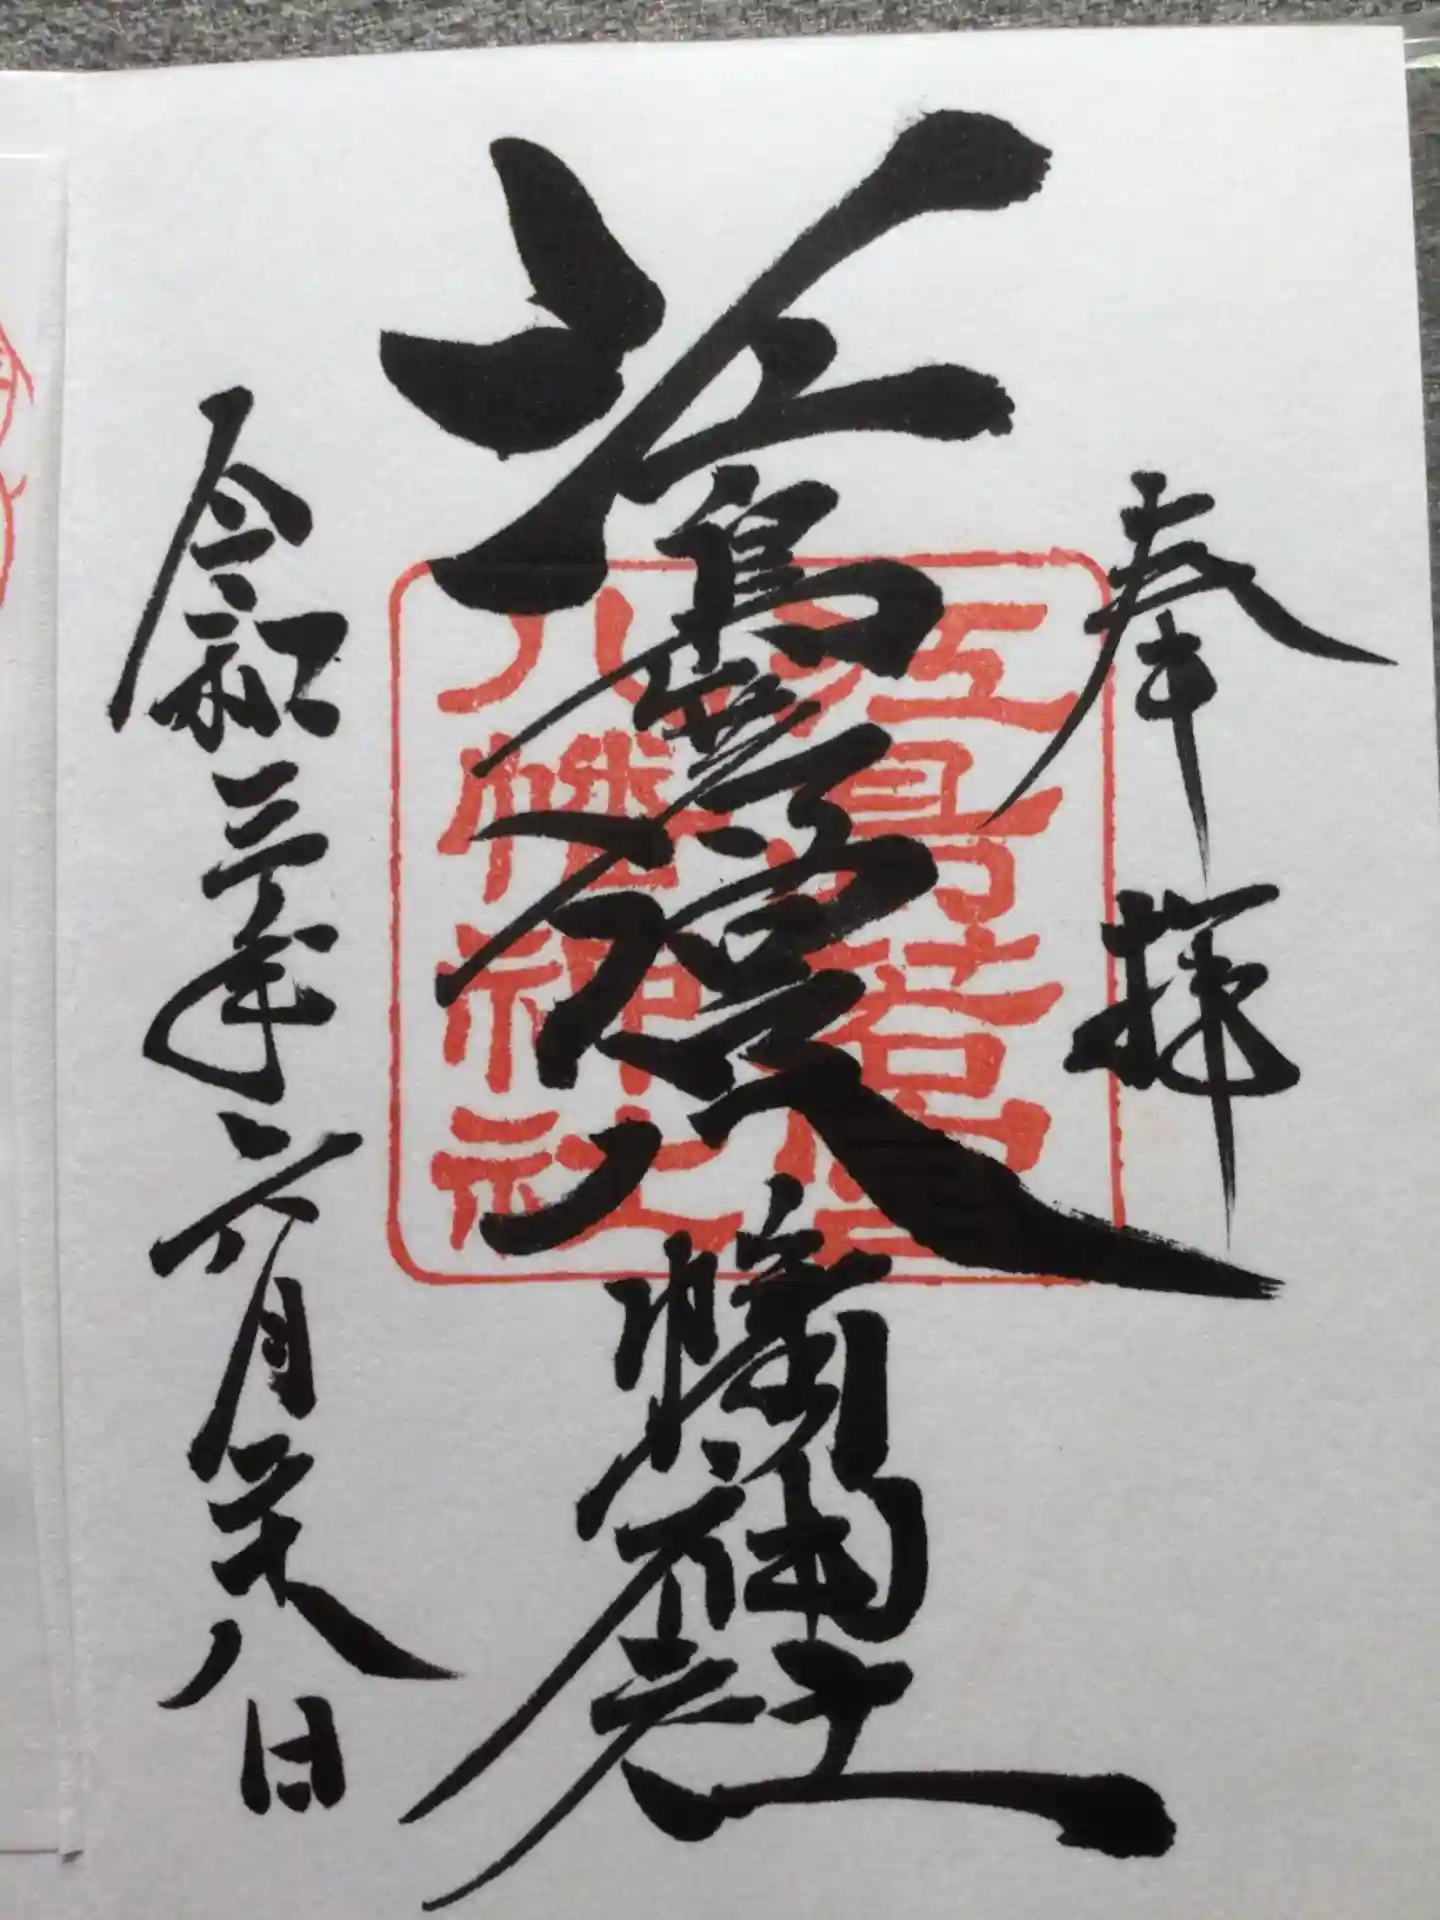 奉拝
江島若宮八幡神社
令和三年六月二十八日
江島若宮
八幡神社